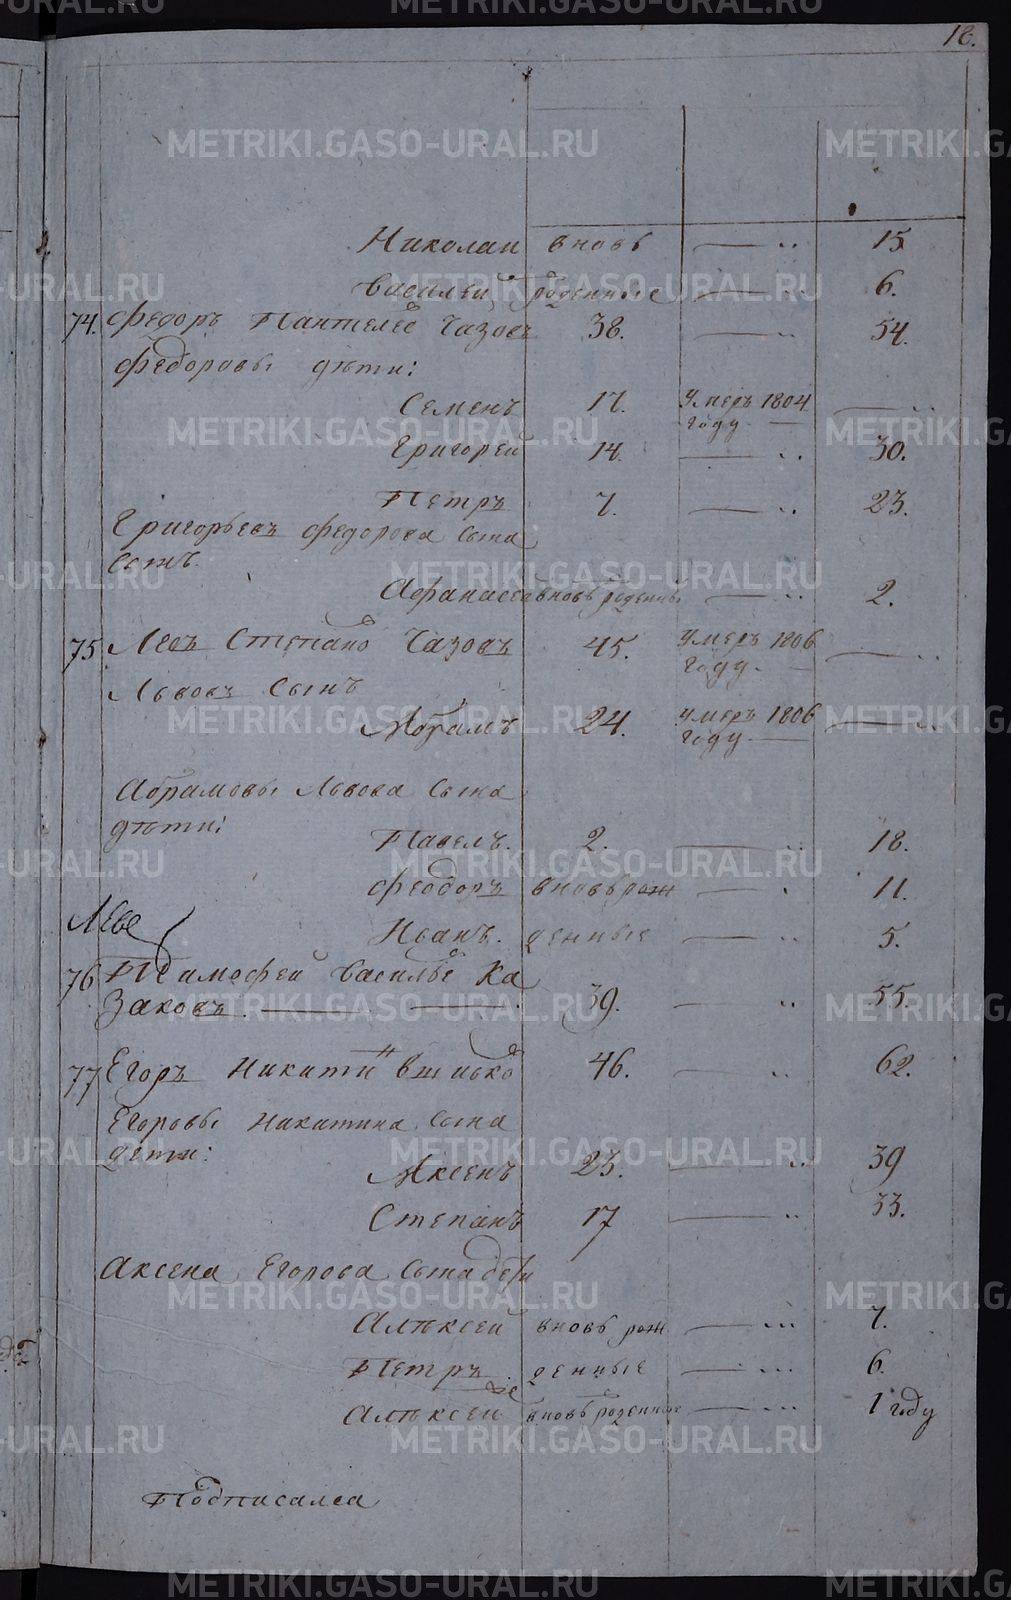 18.
Николаи вновь —— .. 15
Василеи роденные —— .. 6.
74. Федоръ Пантелеѣ Чазовъ 38. —— .. 54.
Федоровы дѣти:
Семенъ 17. Умеръ 1804 —— ..
году —
Григореи 14. —— .. 30.
Петръ 7. —— .. 23.
Григорьевъ Федорова сына
сынъ.
Афанасеи вновь роденны —— .. 2.
75 Левъ Степано Чазовъ 45. Умеръ 1806 —— ..
году. —
Львовъ сынъ
Абрамъ 24. Умеръ 1806 —— ..
году —
Абрамовы Львова сына
дѣти:
Павелъ. 2. —— .. 18.
Феодоръ вновь рож —— . 11.
Иванъ. денные —— .. 5.
76 Тимофеи Василье Ка
заковъ. —— 39. —— .. 55.
77 Егоръ Никити 46. —— .. 62.
Егоровы Никитина сына
дети:
Аксенъ 23. —— .. 39
Степанъ 17 —— .. 33.
Аксена Егорова сына дети
Алѣксеи вновь рож —— ... 7.
Петръ денные —— ... 6.
Алѣксеи вновь роденные —— ... 1 году
Подписалса
METRIKI.GASO-URAL.RU